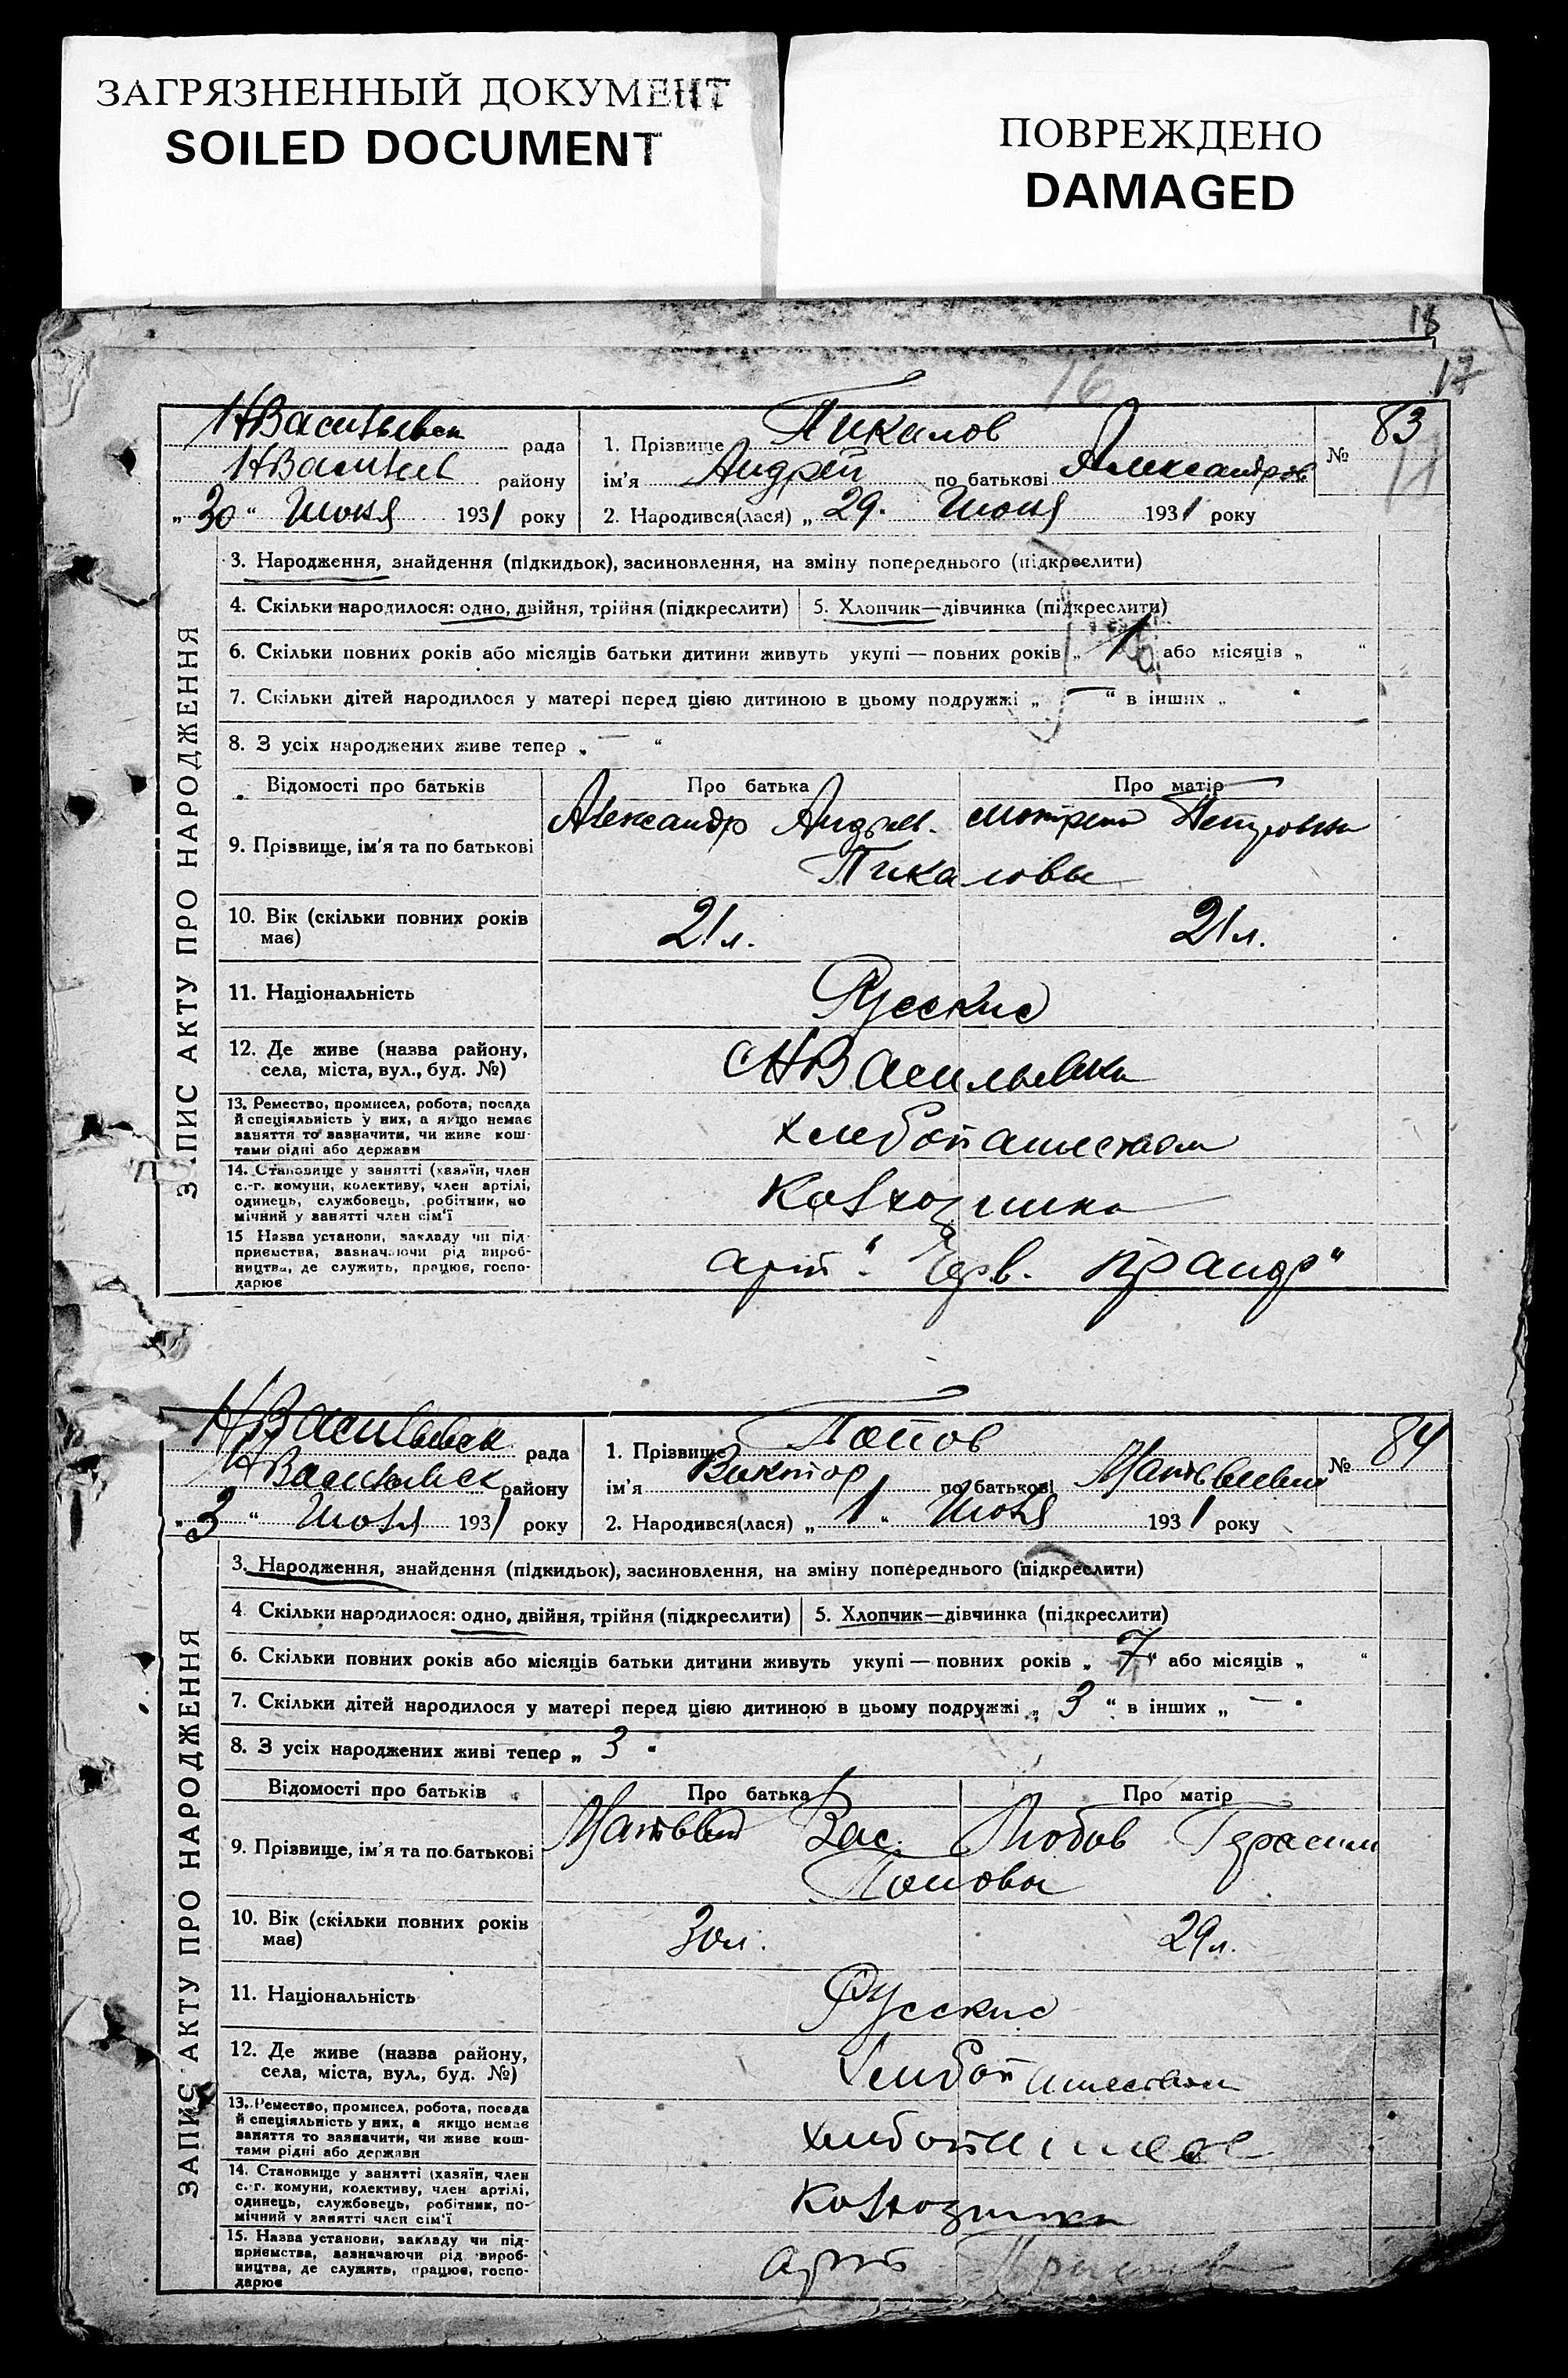 ЗАГРЯЗНЕННЫЙ ДОКУМЕНТ
SOILED DOCUMENT
ПОВРЕЖДЕНО
DAMAGED
18
17
16
НВасильевск рада
НВасильев району
„30“ Июня 1931 року
1. Прізвище Пикалов
ім'я Андрей по батькові Александров
2. Народився(лася) „29. Июня 1931 року
№ 83
ЗАПИС АКТУ ПРО НАРОДЖЕННЯ
3. Народження, знайдення (підкидьок), засиновлення, на зміну попереднього (підкреслити)
4. Скільки народилося: одно, двійня, трійня (підкреслити) 5. Хлопчик—дівчинка (підкреслити)
6. Скільки повних років або місяців батьки дитини живуть укупі — повних років „ 1 “ або місяців „ “
7. Скільки дітей народилося у матері перед цією дитиною в цьому подружжі „ — “ в інших „ “
8. З усіх народжених живе тепер „ — “
Відомості про батьків Про батька Про матір
9. Прізвище, ім'я та по батькові Александр Андреев. Мотрена Петровна
Пикаловы
10. Вік (скільки повних років має) 21 л. 21 л.
11. Національність Русские
12. Де живе (назва району, села, міста, вул., буд. №) С НВасильевка
13. Ремество, промисел, робота, посада
й спеціяльність у них, а якщо немає
заняття то зазначити, чи живе кош-
тами рідні або держави
хлебопашеством
14. Становище у занятті (хазяїн, член
с.-г. комуни, колективу, член артілі,
одинець, службовець, робітник, по
мічний у занятті член сім'ї
Колхозники
15 Назва установи, закладу чи під-
приємства, зазначаючи рід вироб-
ництва, де служить, працює, госпо-
дарює
арт. „Черв.
НВасильевск рада
НВасильевск району
„3“ Июля 1931 року
1. Прізвище Попов
ім'я Виктор по батькові Матвеевич
2. Народився(лася) „1“ Июля 1931 року
№ 84
ЗАПИС АКТУ ПРО НАРОДЖЕННЯ
3. Народження, знайдення (підкидьок), засиновлення, на зміну попереднього (підкреслити)
4 Скільки народилося: одно, двійня, трійня (підкреслити) 5. Хлопчик—дівчинка (підкреслити)
6. Скільки повних років або місяців батьки дитини живуть укупі — повних років „ 7 “ або місяців „ “
7. Скільки дітей народилося у матері перед цією дитиною в цьому подружжі „ 3 “ в інших „ — “
8. З усіх народжених живі тепер „ 3 “
Відомості про батьків Про батька Про матір
9. Прізвище, ім'я та по батькові Матвей Вас. Любов Герасим
Поповы
10. Вік (скільки повних років має) 30 л. 29 л.
11. Національність Русские
12. Де живе (назва району, села, міста, вул., буд. №) Хлебопашеством
13. Ремество, промисел, робота, посада
й спеціяльність у них, а якщо немає
заняття то зазначити, чи живе кош-
тами рідні або держави
хлебопашес
14. Становище у занятті (хазяїн, член
с.-г. комуни, колективу, член артілі,
одинець, службовець, робітник, по-
мічний у занятті член сім'ї
Колхозники
15. Назва установи, закладу чи під-
приємства, зазначаючи рід вироб-
ництва, де служить, працює, госпо-
дарює
арт